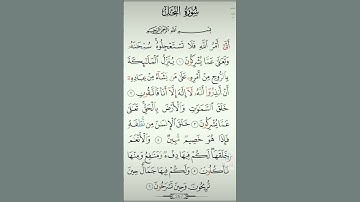 سُورَةُ النَّحْلِ
بِسْمِ اللَّهِ الرَّحْمَٰنِ الرَّحِيمِ
أَتَىٰٓ أَمْرُ ٱللَّهِ فَلَا تَسْتَعْجِلُوهُ سُبْحَٰنَهُۥ
وَتَعَٰلَىٰ عَمَّا يُشْرِكُونَ ١ يُنَزِّلُ ٱلْمَلَٰٓئِكَةَ
بِٱلرُّوحِ مِنْ أَمْرِهِۦ عَلَىٰ مَن يَشَآءُ مِنْ عِبَادِهِۦٓ
أَنْ أَنذِرُوٓا۟ أَنَّهُۥ لَآ إِلَٰهَ إِلَّآ أَنَا۠ فَٱتَّقُونِ ٢
خَلَقَ ٱلسَّمَٰوَٰتِ وَٱلْأَرْضَ بِٱلْحَقِّ تَعَٰلَىٰ
عَمَّا يُشْرِكُونَ ٣ خَلَقَ ٱلْإِنسَٰنَ مِن نُّطْفَةٍ
فَإِذَا هُوَ خَصِيمٌ مُّبِينٌ ٤ وَٱلْأَنْعَٰمَ
خَلَقَهَا لَكُمْ فِيهَا دِفْءٌ وَمَنَٰفِعُ وَمِنْهَا
تَأْكُلُونَ ٥ وَلَكُمْ فِيهَا جَمَالٌ حِينَ
تُرِيحُونَ وَحِينَ تَسْرَحُونَ ٦